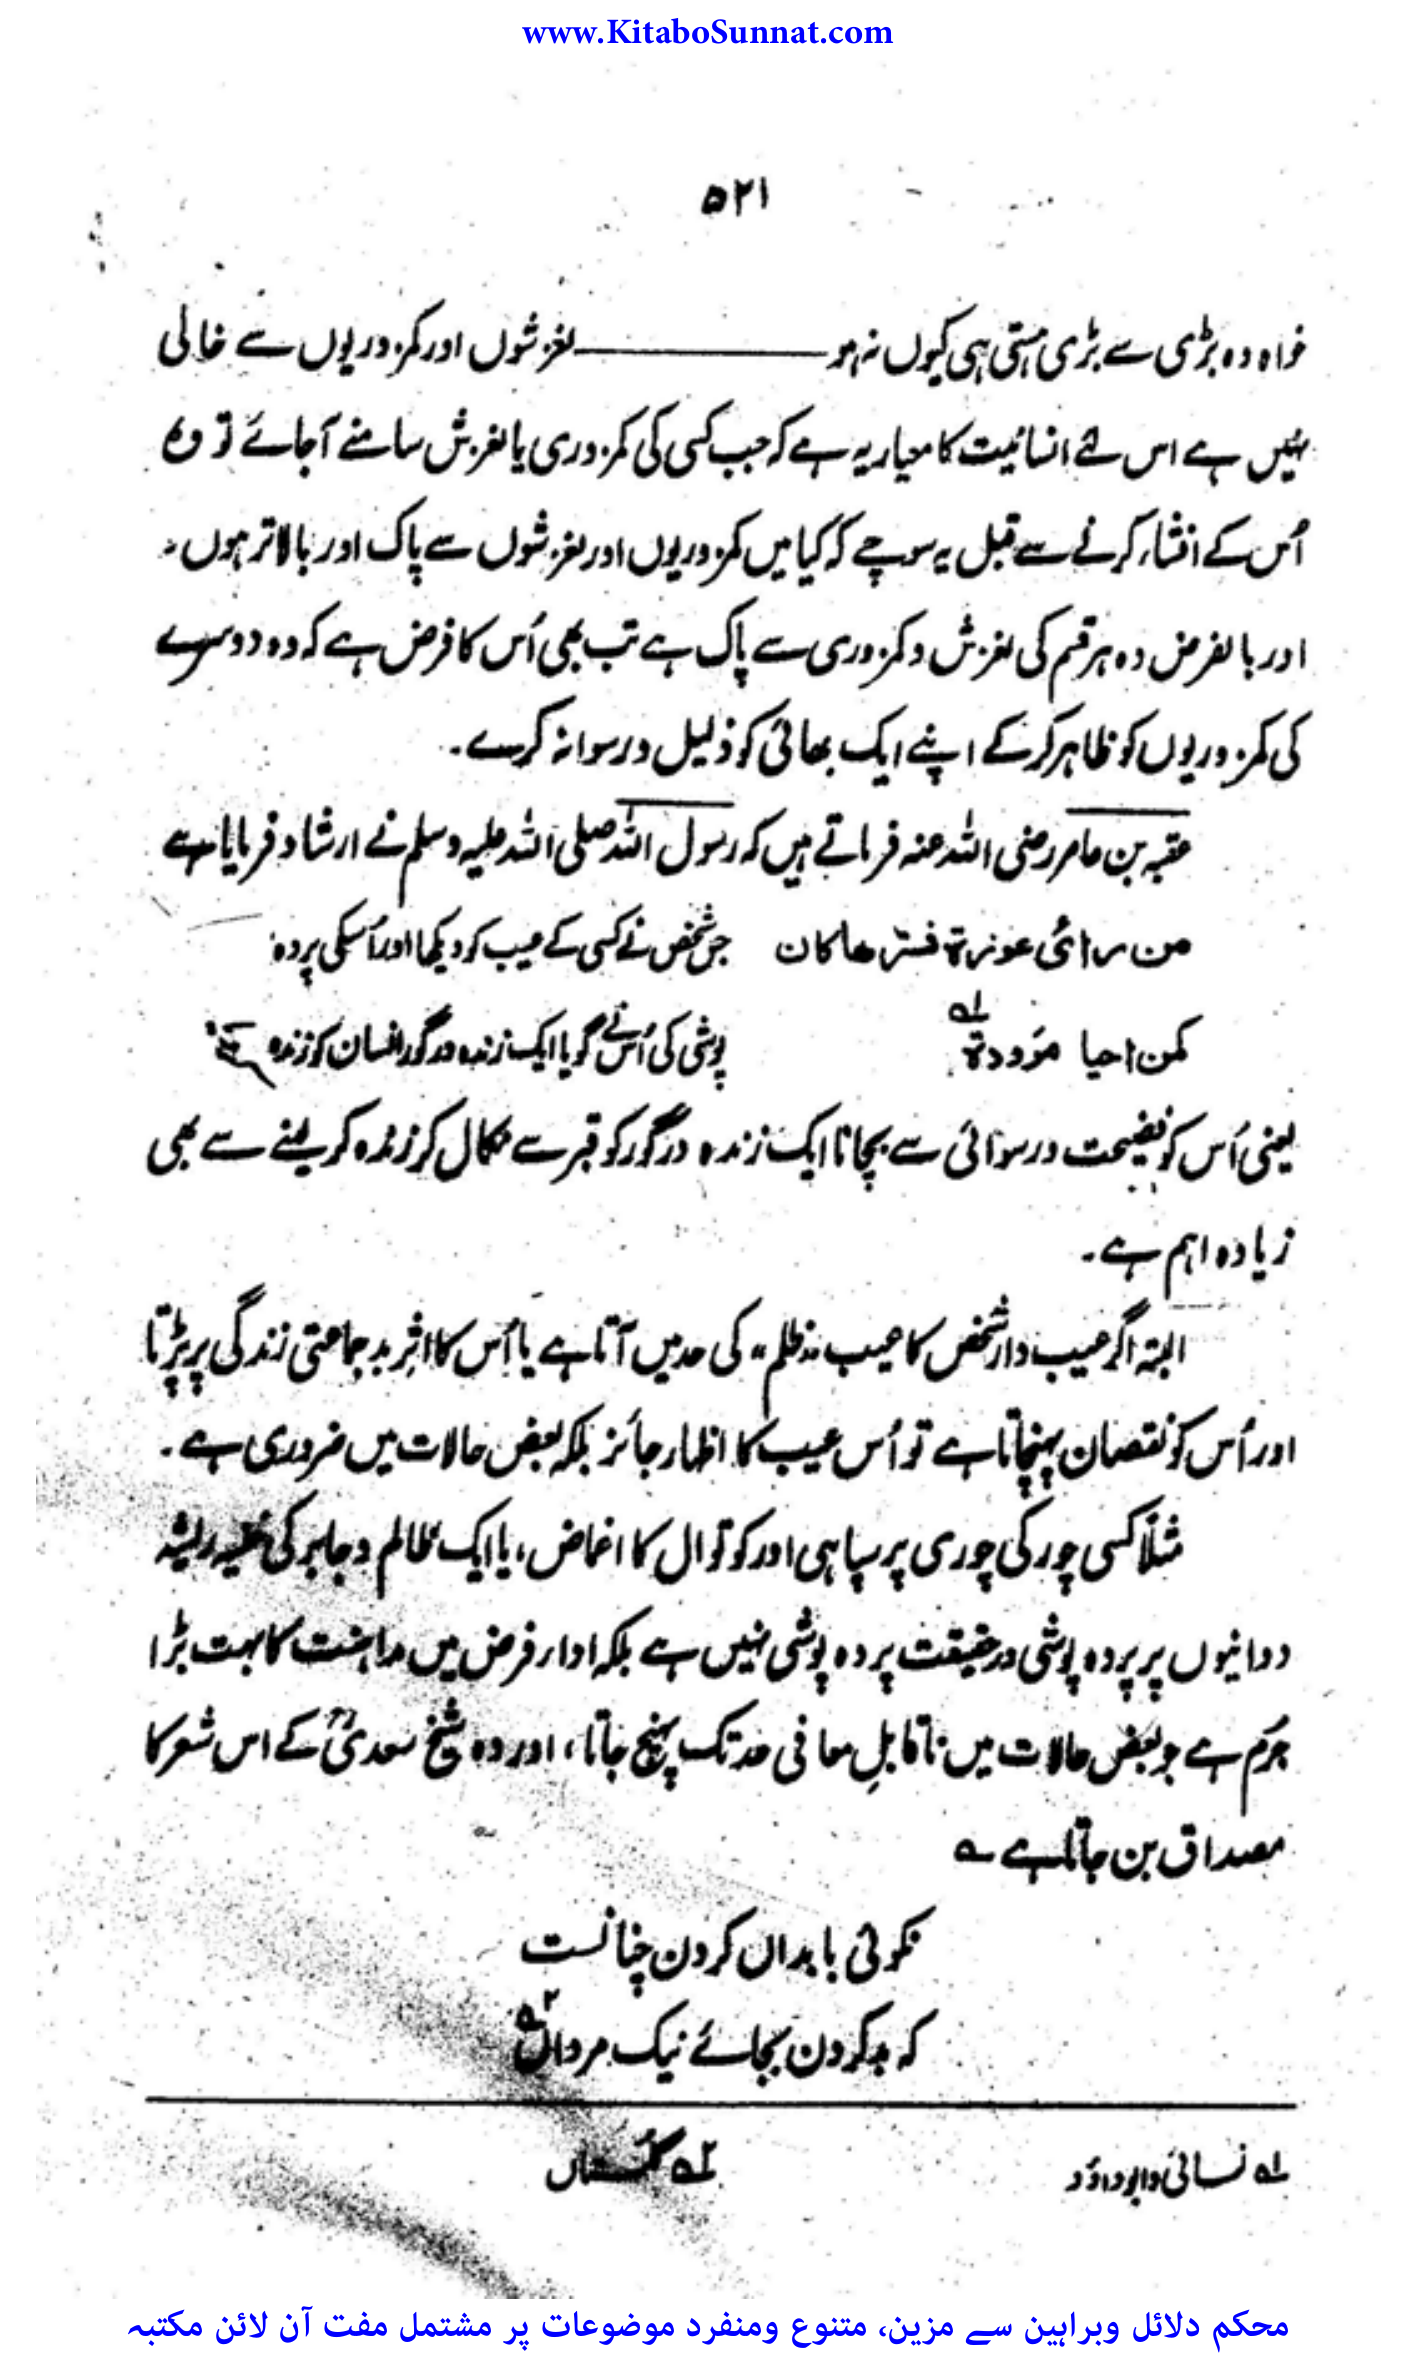 www.KitaboSunnat.com
۵۲۱
خواہ وہ بڑی سے بڑی ہستی ہی کیوں نہ ہو ——— لغزشوں اور کمزوریوں سے خالی
نہیں ہے اس لئے انسانیت کا معیار یہ ہے کہ جب کسی کی کمزوری یا لغزش سامنے آجائے تو وہ
اُس کے افشاء کرنے سے قبل یہ سوچے کہ کیا میں کمزوریوں اور لغزشوں سے پاک اور بالاتر ہوں۔
اور بالفرض وہ ہر قسم کی لغزش و کمزوری سے پاک ہے تب بھی اُس کا فرض ہے کہ وہ دوسرے
کی کمزوریوں کو ظاہر کرکے اپنے ایک بھائی کو ذلیل و رسوا نہ کرے۔
عقبہ بن عامر رضی اللہ عنہ فرماتے ہیں کہ رسول اللہ صلی اللہ علیہ وسلم نے ارشاد فرمایا ہے
من رائی عورة فسترها کان جس شخص نے کسی کے عیب کو دیکھا اور اُسکی پردہ
کمن احیا موٴودة ۱؎ پوشی کی اُس نے گویا ایک زندہ در گور انسان کو زندہ
یعنی اُس کو فضیحت و رسوائی سے بچانا ایک زندہ درگور کو قبر سے نکال کر زندہ کرلینے سے بھی
زیادہ اہم ہے۔
البتہ اگر عیب دار شخص کا عیب "ظلم" کی حد میں آتا ہے یا اُس کا اثرِ بد جماعتی زندگی پر پڑتا
اور اُس کو نقصان پہنچاتا ہے تو اُس عیب کا اظہار جائز بلکہ بعض حالات میں ضروری ہے۔
مثلاً کسی چور کی چوری پر سپاہی اور کوتوال کا اغماض، یا ایک ظالم و جابر کی خفیہ ریشہ
دوانیوں پر پردہ پوشی درحقیقت پردہ پوشی نہیں ہے بلکہ اداءِ فرض میں مداہنت کا بہت بڑا
جرم ہے جو بعض حالات میں ناقابلِ معافی حد تک پہنچ جاتا، اور وہ شیخ سعدیؒ کے اس شعر کا
مصداق بن جاتا ہے ؎
نکوئی با بداں کردن چنانست
کہ بد کردن بجائے نیک مرداں ۲؎
۱؎ نسائی و ابو داؤد ۲؎ گلستاں
محکم دلائل وبراہین سے مزین، متنوع ومنفرد موضوعات پر مشتمل مفت آن لائن مکتبہ